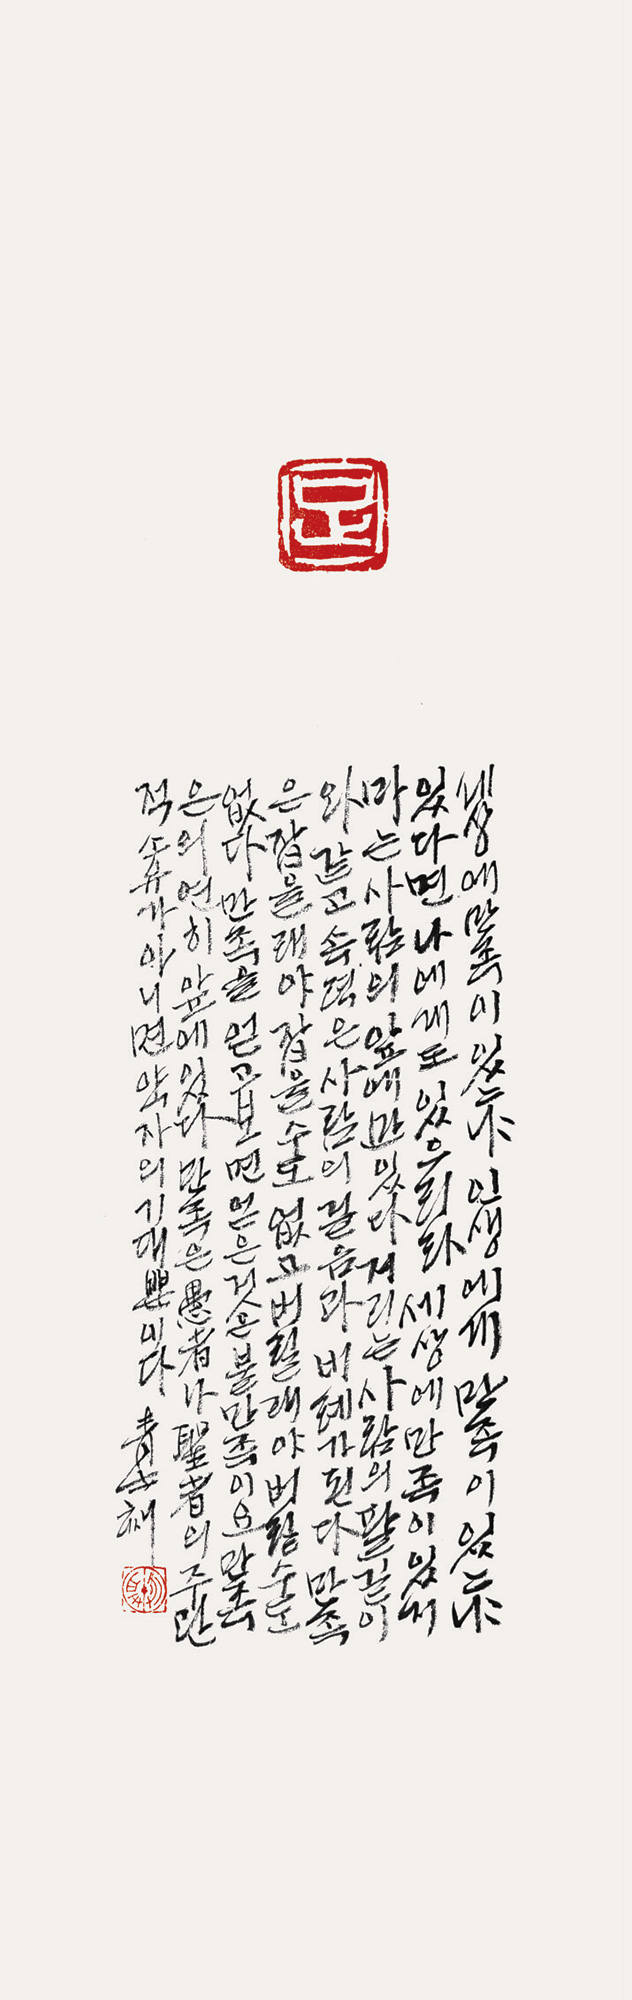 足
세상에 만족이 있느냐 인생에게 만족이 있느냐
있다면 나에게도 있으리라 세상에 만족이 있지
마는 사람의 앞에만 있다 거리는 사람의 팔길이
와 같고 속력은 사람의 걸음과 비례가 된다 만족
은 잡을래야 잡을수도 없고 버릴래야 버릴수도
없다 만족을 얻고보면 얻은것은 불만족이요 만족
은 의연히 앞에 있다 만족은 愚者나 聖者의 주관
적 소유가 아니면 약자의 기대뿐이다